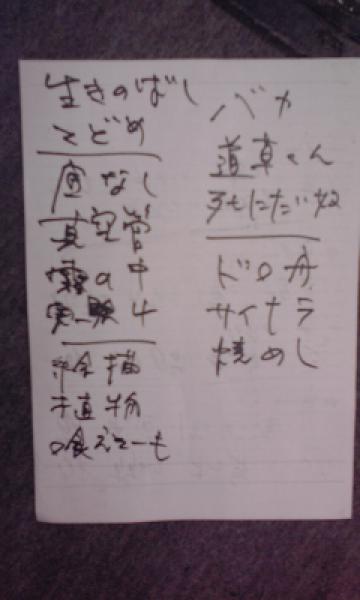 生きのばし
とどめ
宿なし
真空管
霧の中
実験4
絵描
植物
喰えそーも
バカ
道草くん
ドロ舟
サイナラ
焼めし